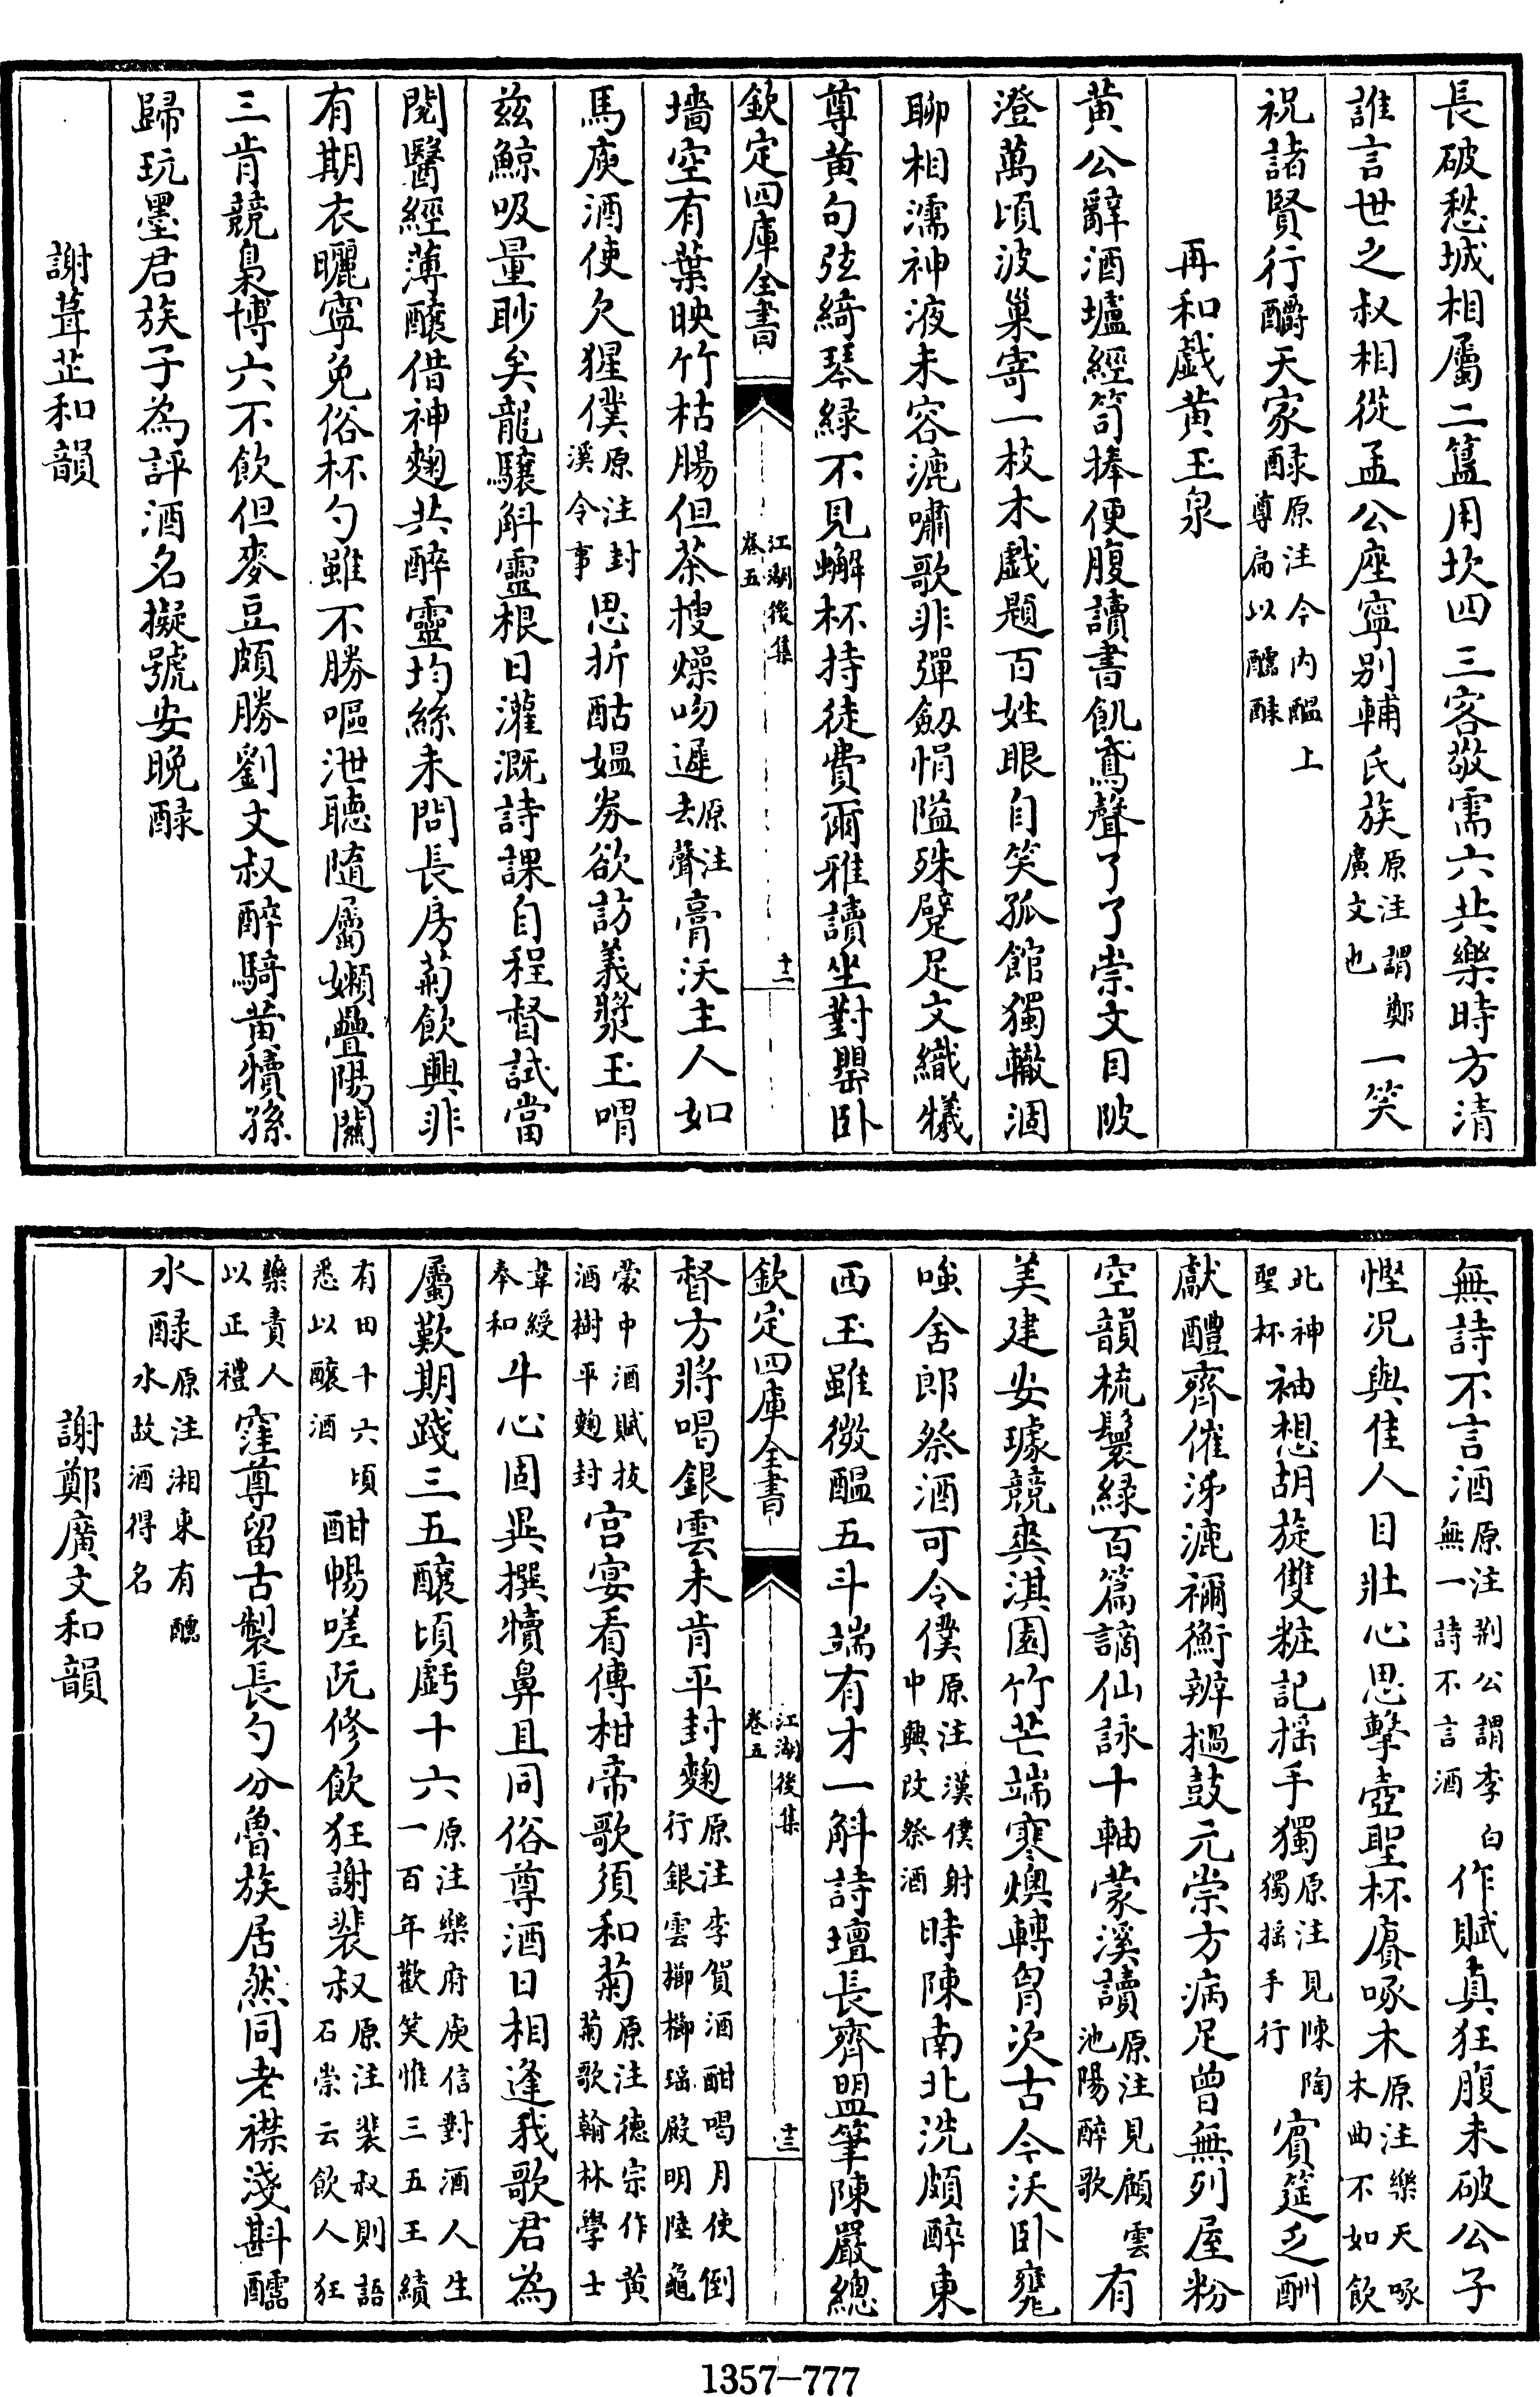 長破愁城相屬二簋用坎四三客敬需六共樂時方清
誰言世之叔相從孟公座寧别輔氏族原注謂鄭廣文也一笑
祝諸賢行酹天家醁原注今内醖上尊扁以醽醁
再和戯黄玉泉
黄公辭酒壚經笥捧便腹讀書飢鳶聲了了崇文目陂
澄萬頃波巢寄一枝木戯題百姓眼自笑孤館獨轍涸
聊相濡神液未容漉嘯歌非彈劒悁隘殊躄足文織犧
尊黄句弦綺琴緑不見蠏杯持徒費爾雅讀坐對罍卧
欽定四庫全書
江湖後集
卷五
十二
墻空有葉映竹枯腸但茶搜燥吻遲原注去聲膏沃主人如
馬庾酒使欠猩僕原注封溪令事思折酤媪券欲訪義漿玉喟
兹鯨吸量眇矣龍驤斛靈根日灌溉詩課自程督試當
閲醫經薄釀借神麴共醉靈均絲未問長房菊飲興非
有期衣曬寧免俗杯勺雖不勝嘔泄聴隨屬嬾疊陽關
三肯競梟博六不飲但麥豆頗勝劉文叔醉騎黄犢孫
歸玩墨君族子為評酒名擬號安晚醁
謝葺芷和韻
無詩不言酒原注荆公謂李白無一詩不言酒作賦真狂腹未破公子
慳况與佳人目壯心思擊壺聖杯賡啄木原注樂天啄木曲不如飲
北神聖杯袖想胡旋雙粧記揺手獨原注見陳陶獨揺手行賓筵乏酬
獻醴齊催涕漉禰衡辨撾鼓元崇方病足曾無列屋粉
空韻梳鬟緑百篇謫仙詠十軸蒙溪讀原注見顧雲池陽醉歌有
美建安璩競爽淇園竹芒端寒燠轉胷次古今沃卧甕
嗤舍郎祭酒可令僕原注漢僕射中興改祭酒時陳南北洗頗醉東
西玉雖微醖五斗端有才一斛詩壇長齊盟筆陳嚴總
欽定四庫全書
江湖後集
卷五
十三
督方將喝銀雲未肯平封麴原注李賀酒酣喝月使倒行銀雲櫛櫛瑶殿明陸龜
蒙中酒賦拔酒樹平麴封宫宴看傳柑帝歌須和菊原注德宗作黄菊歌翰林學士
韋綬奉和牛心固異撰犢鼻且同俗尊酒日相逢我歌君為
屬歎期踐三五釀頃虧十六原注樂府庾信對酒人生一百年歡笑惟三五王績
有田十六頃悉以釀酒酣暢嗟阮修飲狂謝裴叔原注裴叔則語石崇云飲人狂
藥責人以正禮窪尊留古製長勺分魯族居然同老襟淺斟醽
水醁原注湘東有醽水故酒得名
謝鄭廣文和韻
1357-777